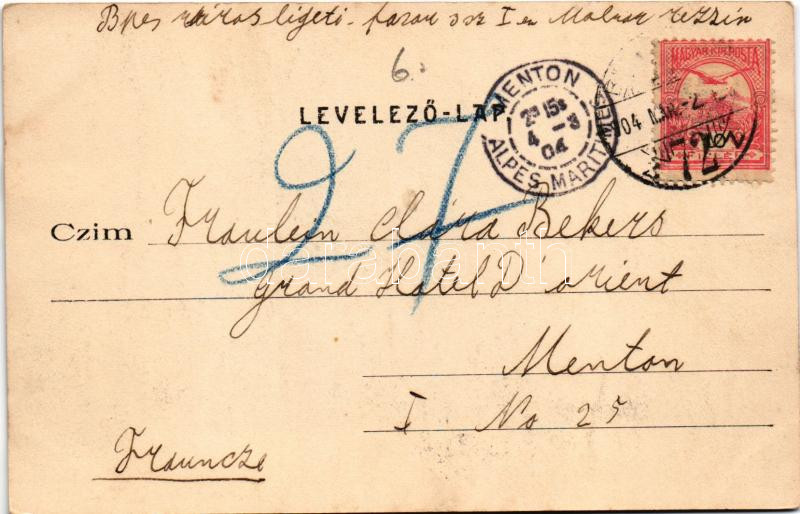 Bpes város ligeti fasor 33 sz I em Molnar rezsin
6.
LEVELEZŐ-LAP
MENTON
2E 15S
4 -3
04
ALPES MARITIMES
MAGYAR KIR. POSTA
04 MÁR -2
27
Czim Fraulein Clára Bekers
Grand Hotel D'orient
Menton
I No 25
Frauncze
darabanth